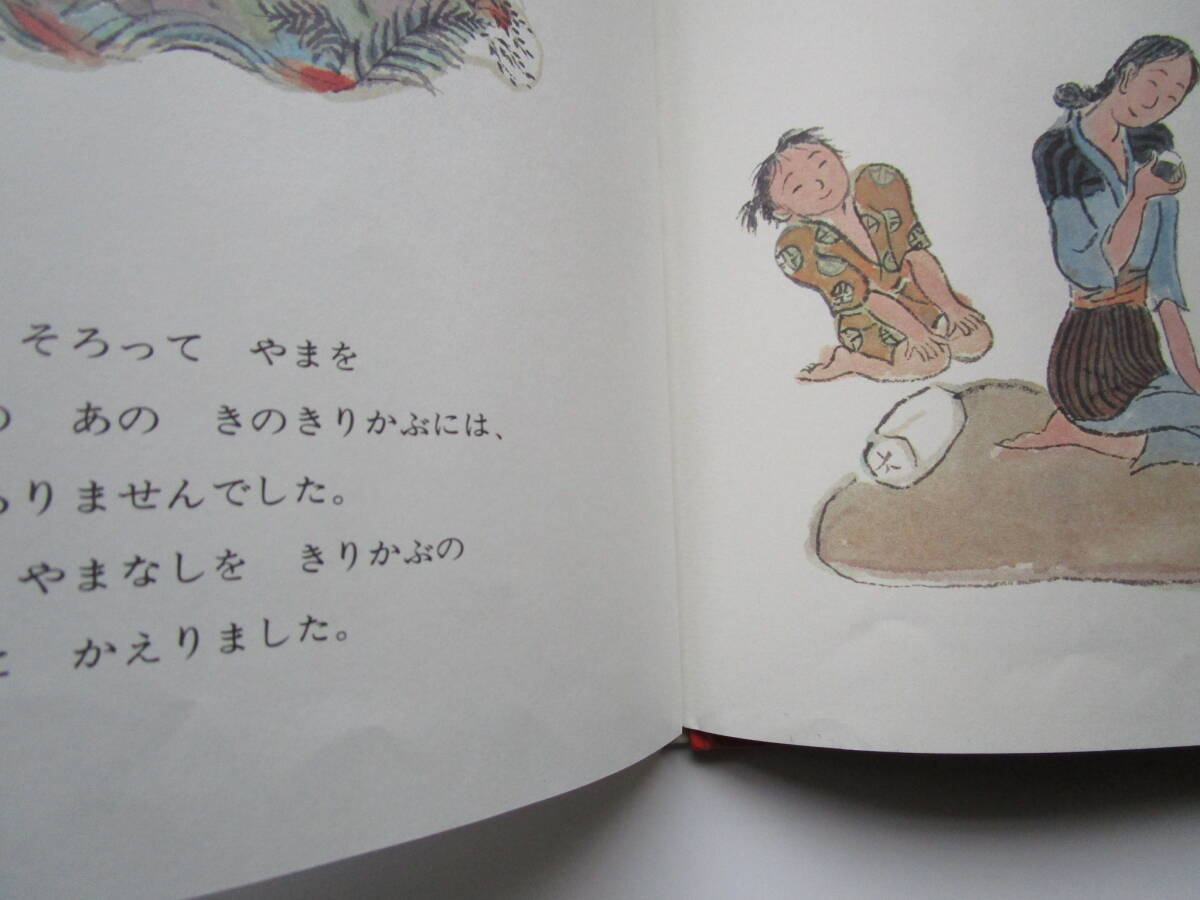 そろって やまを
あの きのきりかぶには、
りませんでした。
やまなしを きりかぶの
かえりました。